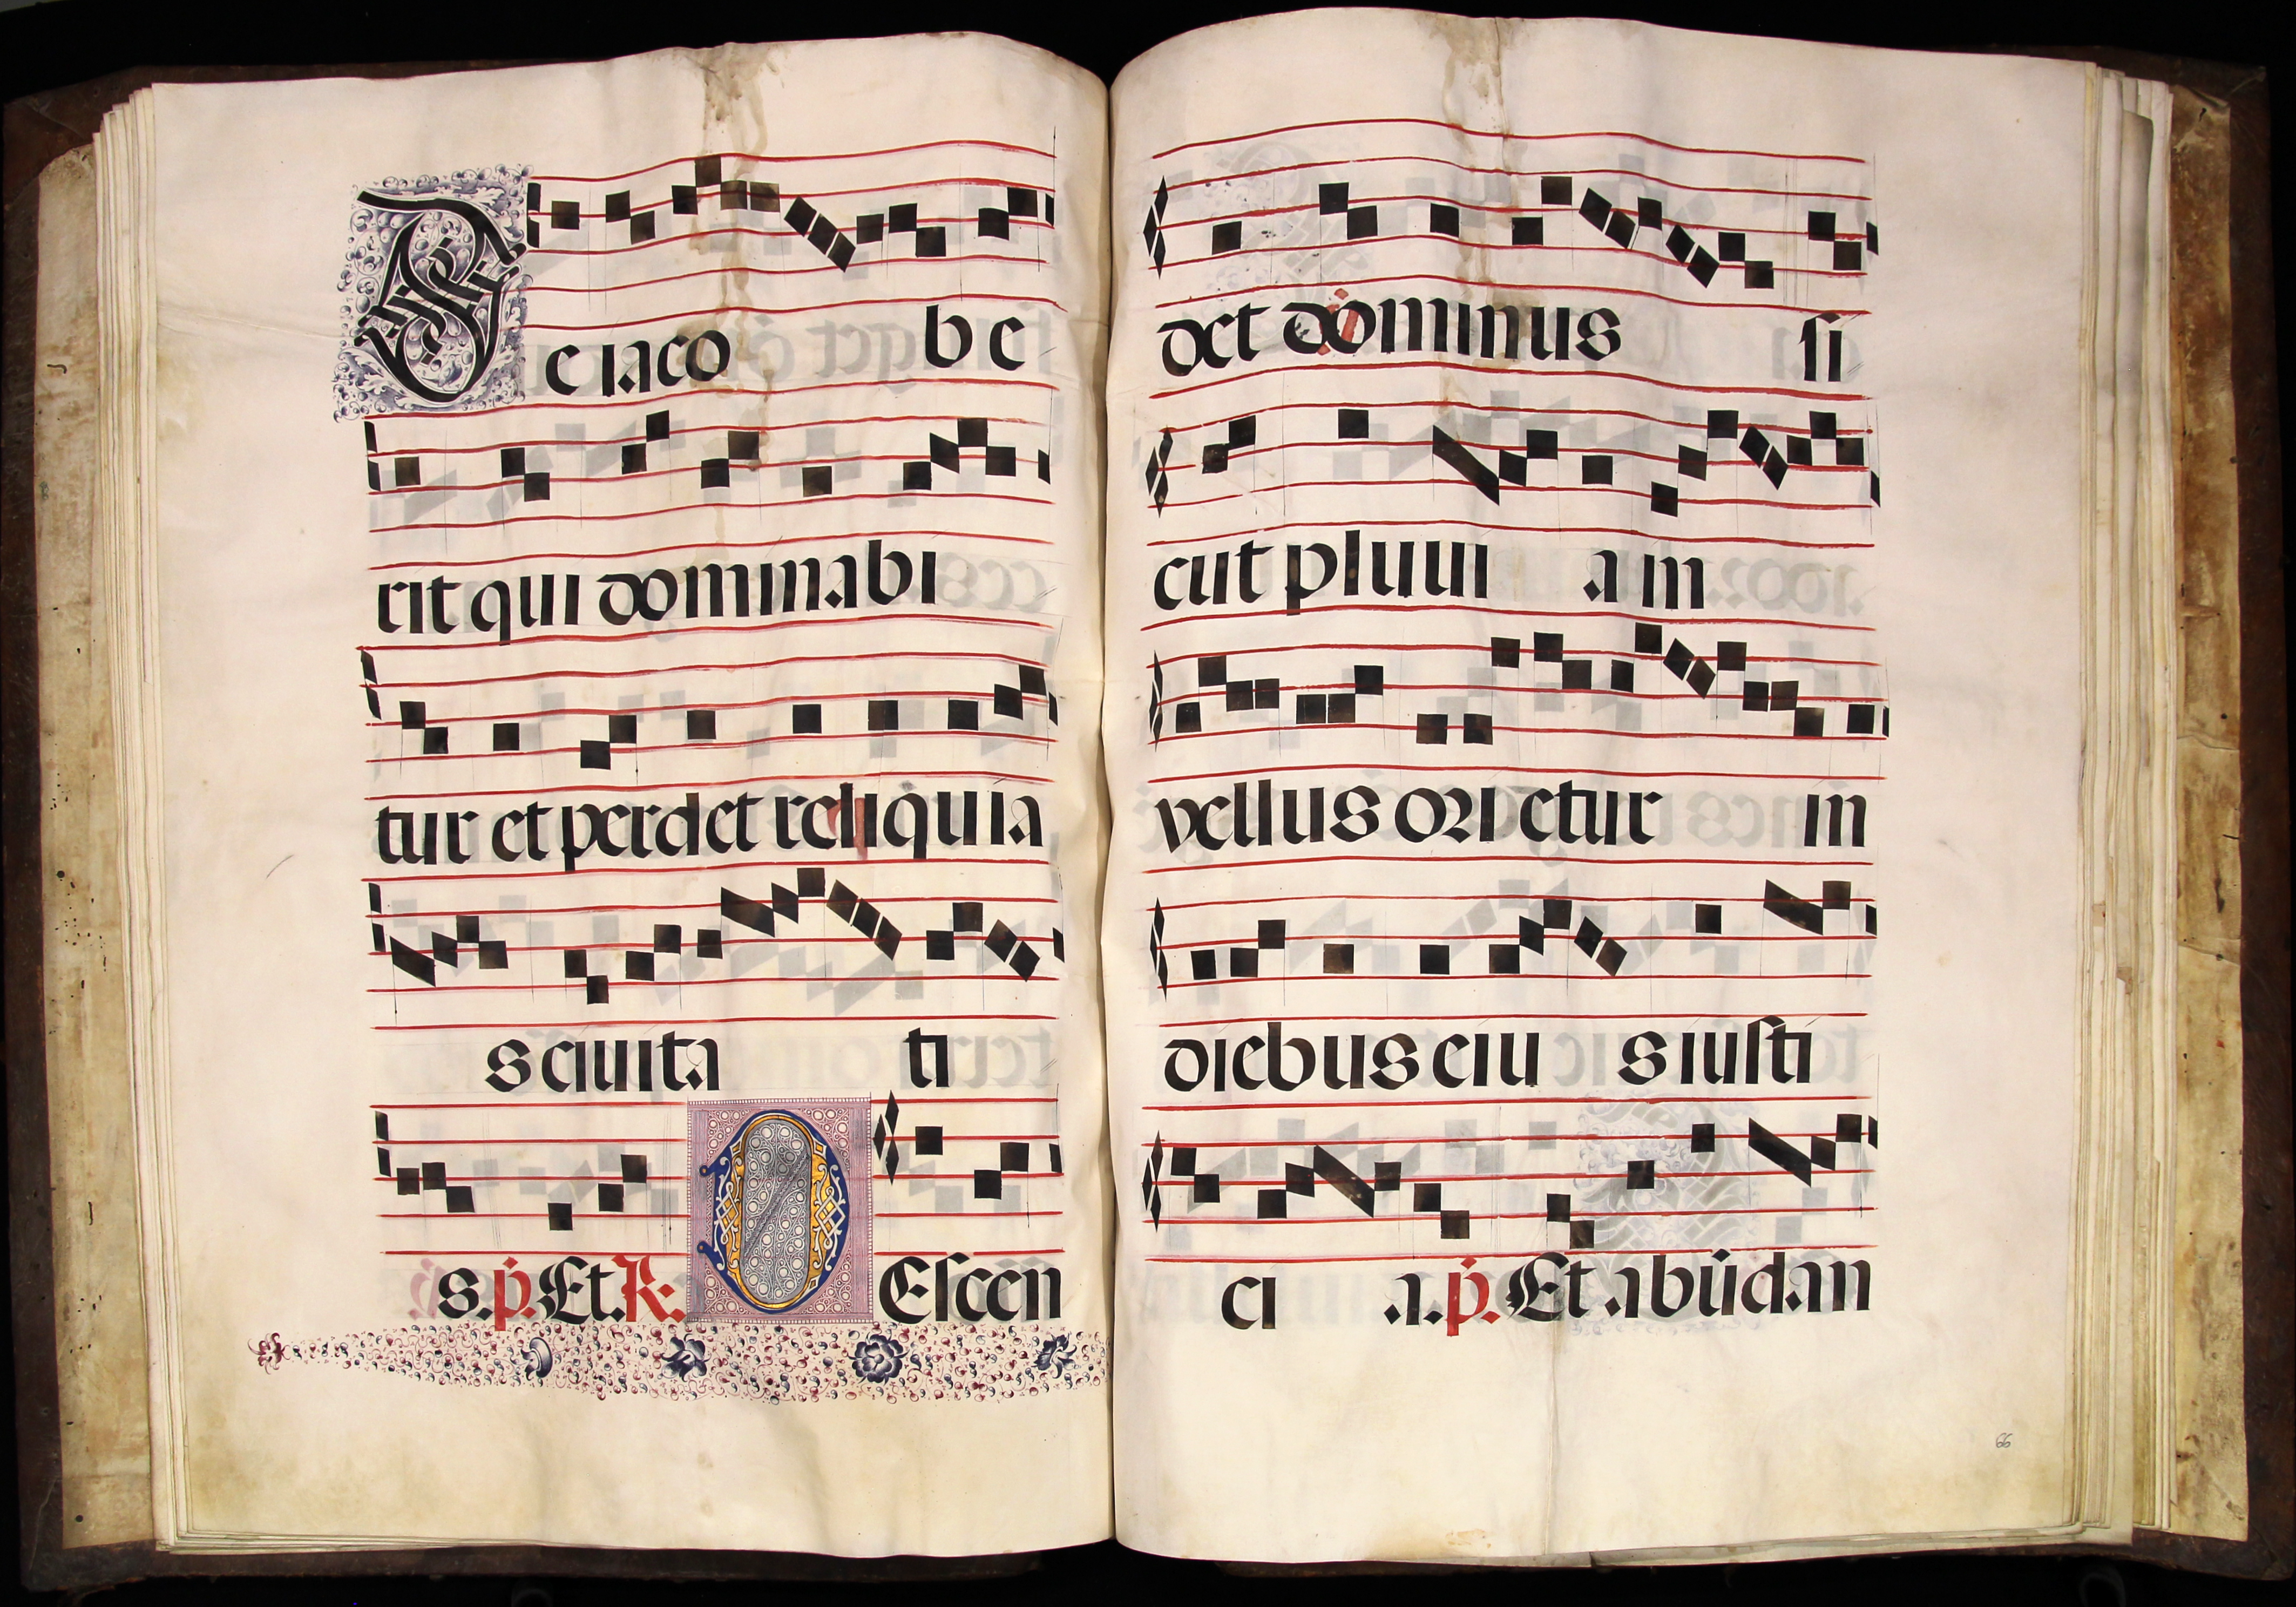 De iaco be
rit qui dominabi
tur et perdet reliquia
s ciuita ti
s. p̄. Et. R. DEscen
det dominus si
cut pluui a in
vellus ori etur in
diebus eiu s iusti
ci a. p̄. Et abūdan
66